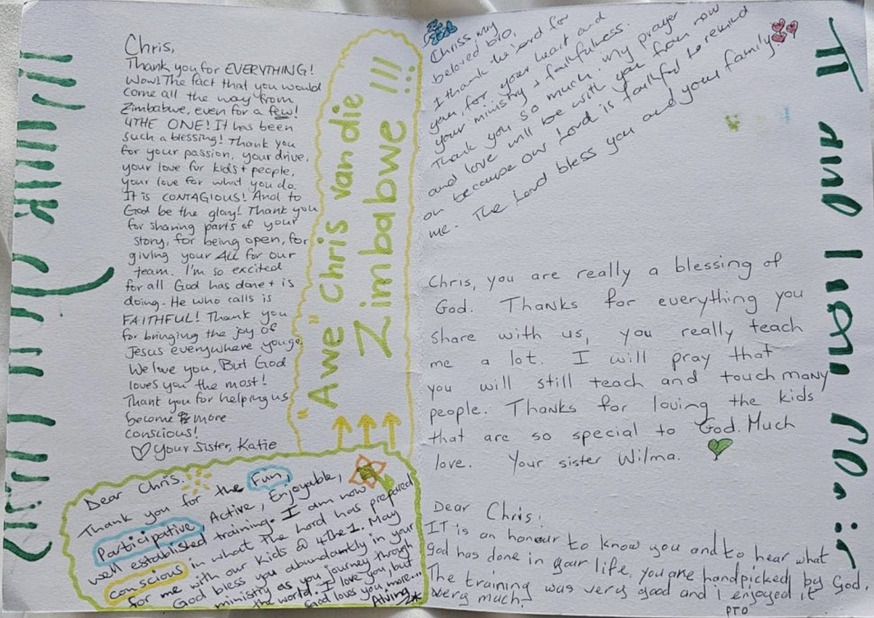 Chris,
Thank you for EVERYTHING!
Wow! The fact that you would
come all the way from
Zimbabwe, even for a few!
4THE ONE! It has been
such a blessing! Thank you
for your passion, your drive,
your love for kids + people,
your love for what you do.
It is CONTAGIOUS! And to
God be the glory! Thank you
for sharing parts of your
story, for being open, for
giving your ALL for our
team. I'm so excited
for all God has done + is
doing. He who calls is
FAITHFUL! Thank you
for bringing the joy of
Jesus everywhere you go.
We love you, But God
loves you the most!
Thank you for helping us
become more
conscious!
Your Sister, Katie
"Awe" Chris van die
Zimbabwe !!!
Dear Chris,
Thank you for the Fun,
Participative, Active, Enjoyable,
well established training. I am now
conscious in what the Lord has prepared
for me with our kids @ 4The1. May
God bless you abundantly in your
ministry as you journey through
the world. I love you, but
God loves you more...
Chriss my
beloved bro,
I thank the Lord for
you, for your heart and
your ministry + faithfulness.
Thank you so much. My prayer
and love will be with you from now
on because our Lord is faithful to remind
me. The Lord bless you and your family!
Chris, you are really a blessing of
God. Thanks for everything you
share with us, you really teach
me a lot. I will pray that
you will still teach and touch many
people. Thanks for loving the kids
that are so special to God. Much
love. Your sister Wilma.
Dear Chris:
IT is an honour to know you and to hear what
God has done in your life. you are handpicked by God.
The training was very good and i enjoyed it
very much.
PTO